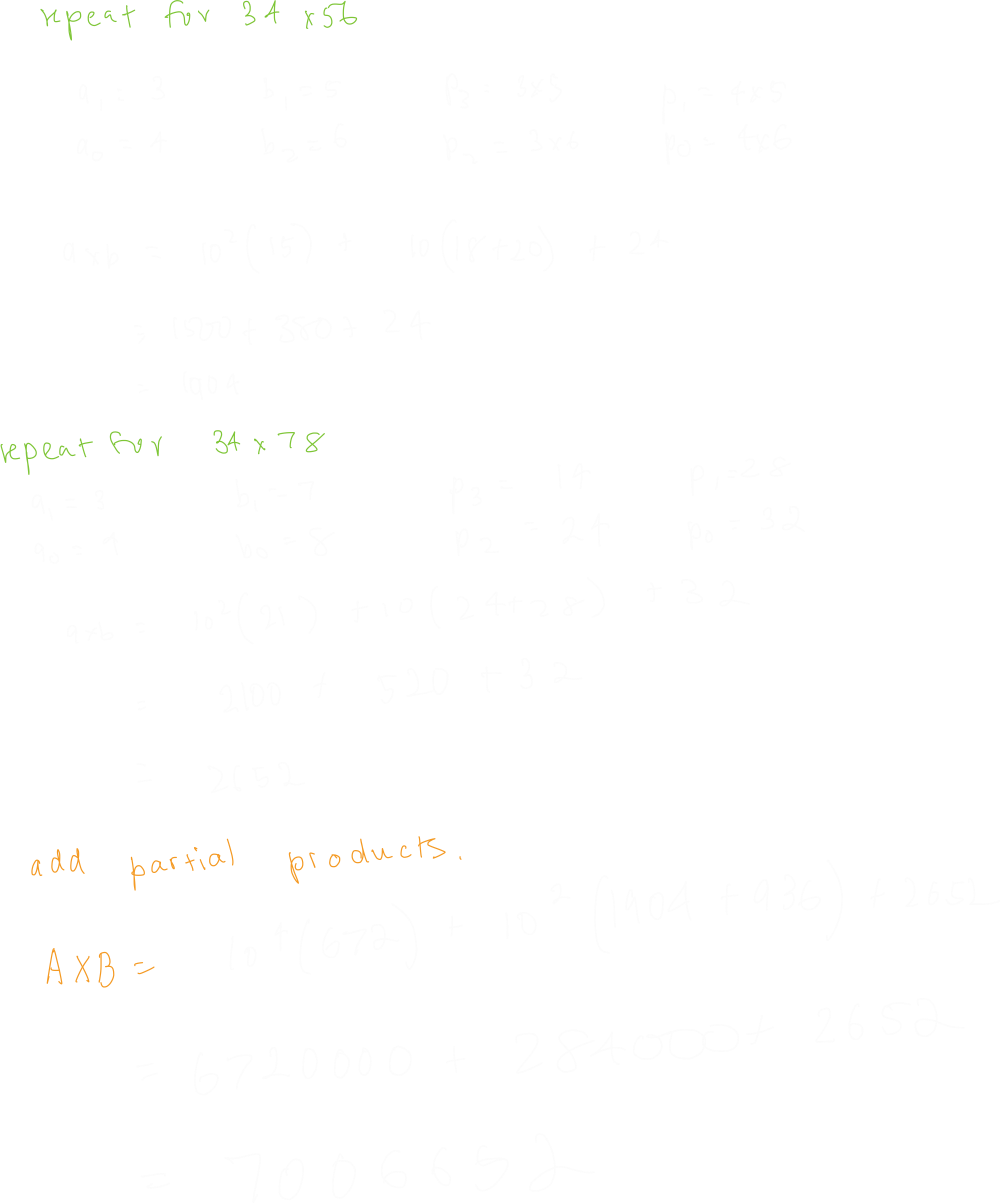 repeat for 34 x 56
a₁ = 3 b₁ = 5 P₃ 3x5 p₁ = 4x5
a₀ = 4 b₀ = 6 P₂ = 3x6 p₀ = 4x6
axb = 10²(15) + 10(18+20) + 24
= 1500 + 380 + 24
= 1904
repeat for 34 x 78
a₁ = 3 b₁ = 7 P₃ = P₁ = 28
a₀ = 4 b₀ = 8 P₂ = 24 p₀ = 32
axb = 10²(21) + 10(24+28) + 32
= 2100 + 520 + 32
= 2652
add partial products.
AXB = 10⁴(672) + 10²(1904 + 936) + 2652
= 6720000 + 284000 + 2652
= 7006652